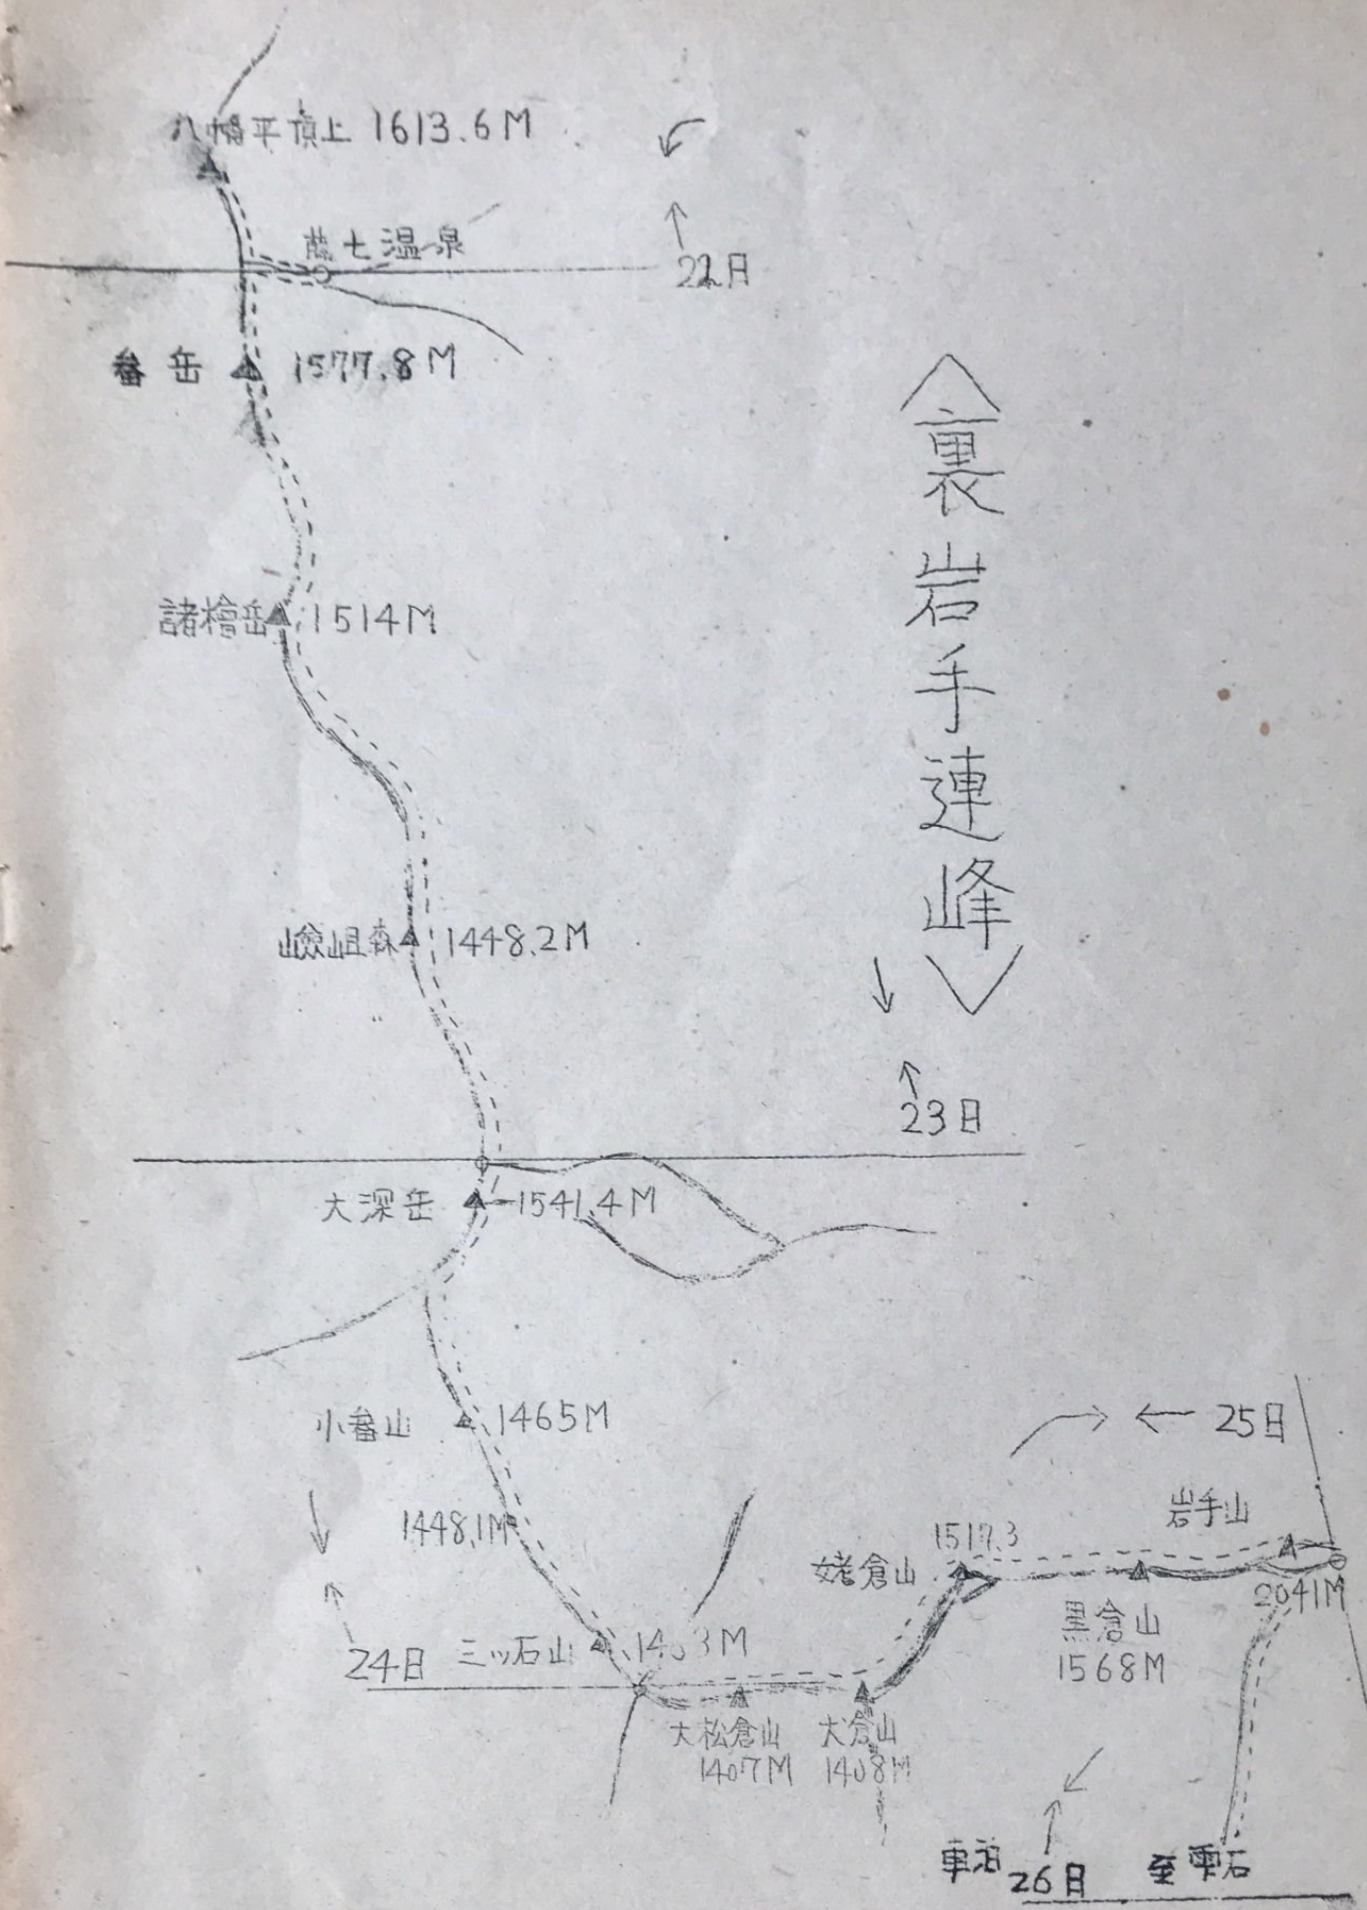 八幡平頂上 1613.6M
藤七温泉
22日
畚岳 1577.8M
裏岩手連峰
諸檜岳 1514M
嶮岨森 1448.2M
23日
大深岳 1541.4M
小畚山 1465M
25日
1448.1M
岩手山
2041M
姥倉山
1517.3
黒倉山
1568M
24日
三ッ石山
大松倉山
1407M
犬倉山
1408M
車泊
26日
至雫石